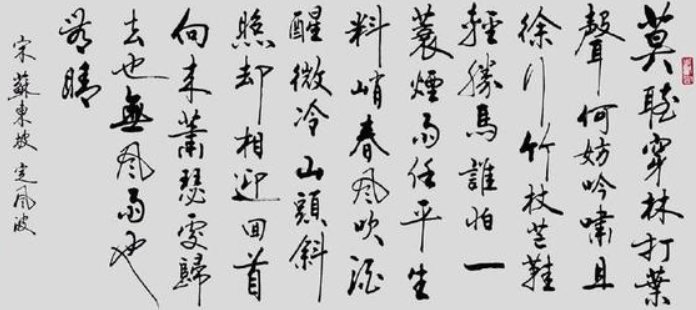 莫聽穿林打葉
聲何妨吟嘯且
徐行竹杖芒鞋
輕勝馬誰怕一
蓑煙雨任平生
料峭春風吹酒
醒微冷山頭斜
照却相迎回首
向來蕭瑟處歸
去也無風雨也
無晴
宋蘇東坡定風波